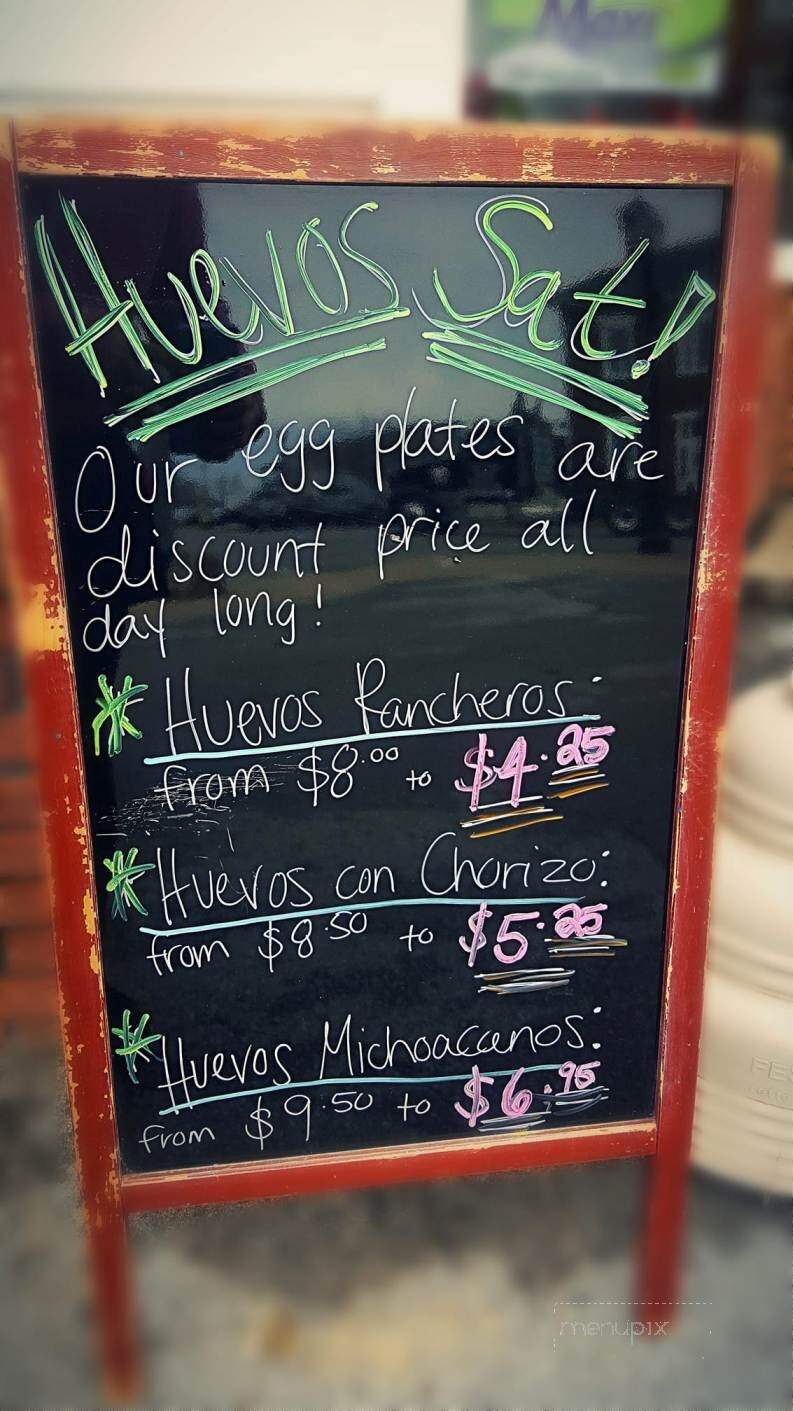 Maxi
Huevos Sat!
Our egg plates are
discount price all
day long!
* Huevos Rancheros:
from $8.00 to $4.25
* Huevos con Chorizo:
from $8.50 to $5.25
* Huevos Michoacanos:
from $9.50 to $6.95
menupix